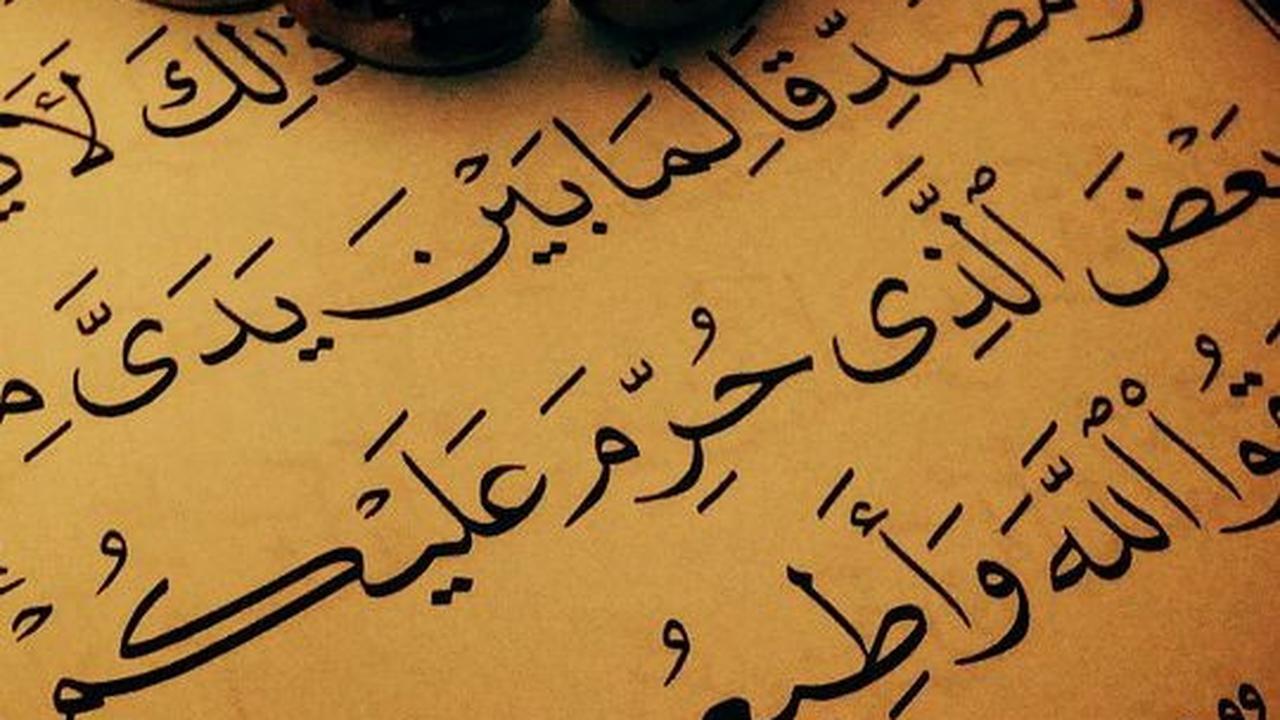 ذَٰلِكَ
وَمُصَدِّقًا لِمَا بَيْنَ يَدَىَّ
بَعْضَ ٱلَّذِى حُرِّمَ عَلَيْكُمْ
ٱللَّهَ وَأَطِيعُو